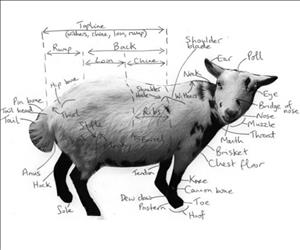 Topline
(withers, chine, loin, rump)
Rump
Back
Loin
Chine
Shoulder
blade
Neck
Ear
Poll
Hip bone
Withers
Pin bone
Tail head
Tail
Thurl
Ribs
Eye
Bridge of
nose
Nose
Muzzle
Mouth
Throat
Stifle
Barrel
Brisket
Chest floor
Anus
Hock
Tendon
Knee
Cannon bone
Sole
Dew claw
Pastern
Toe
Hoof